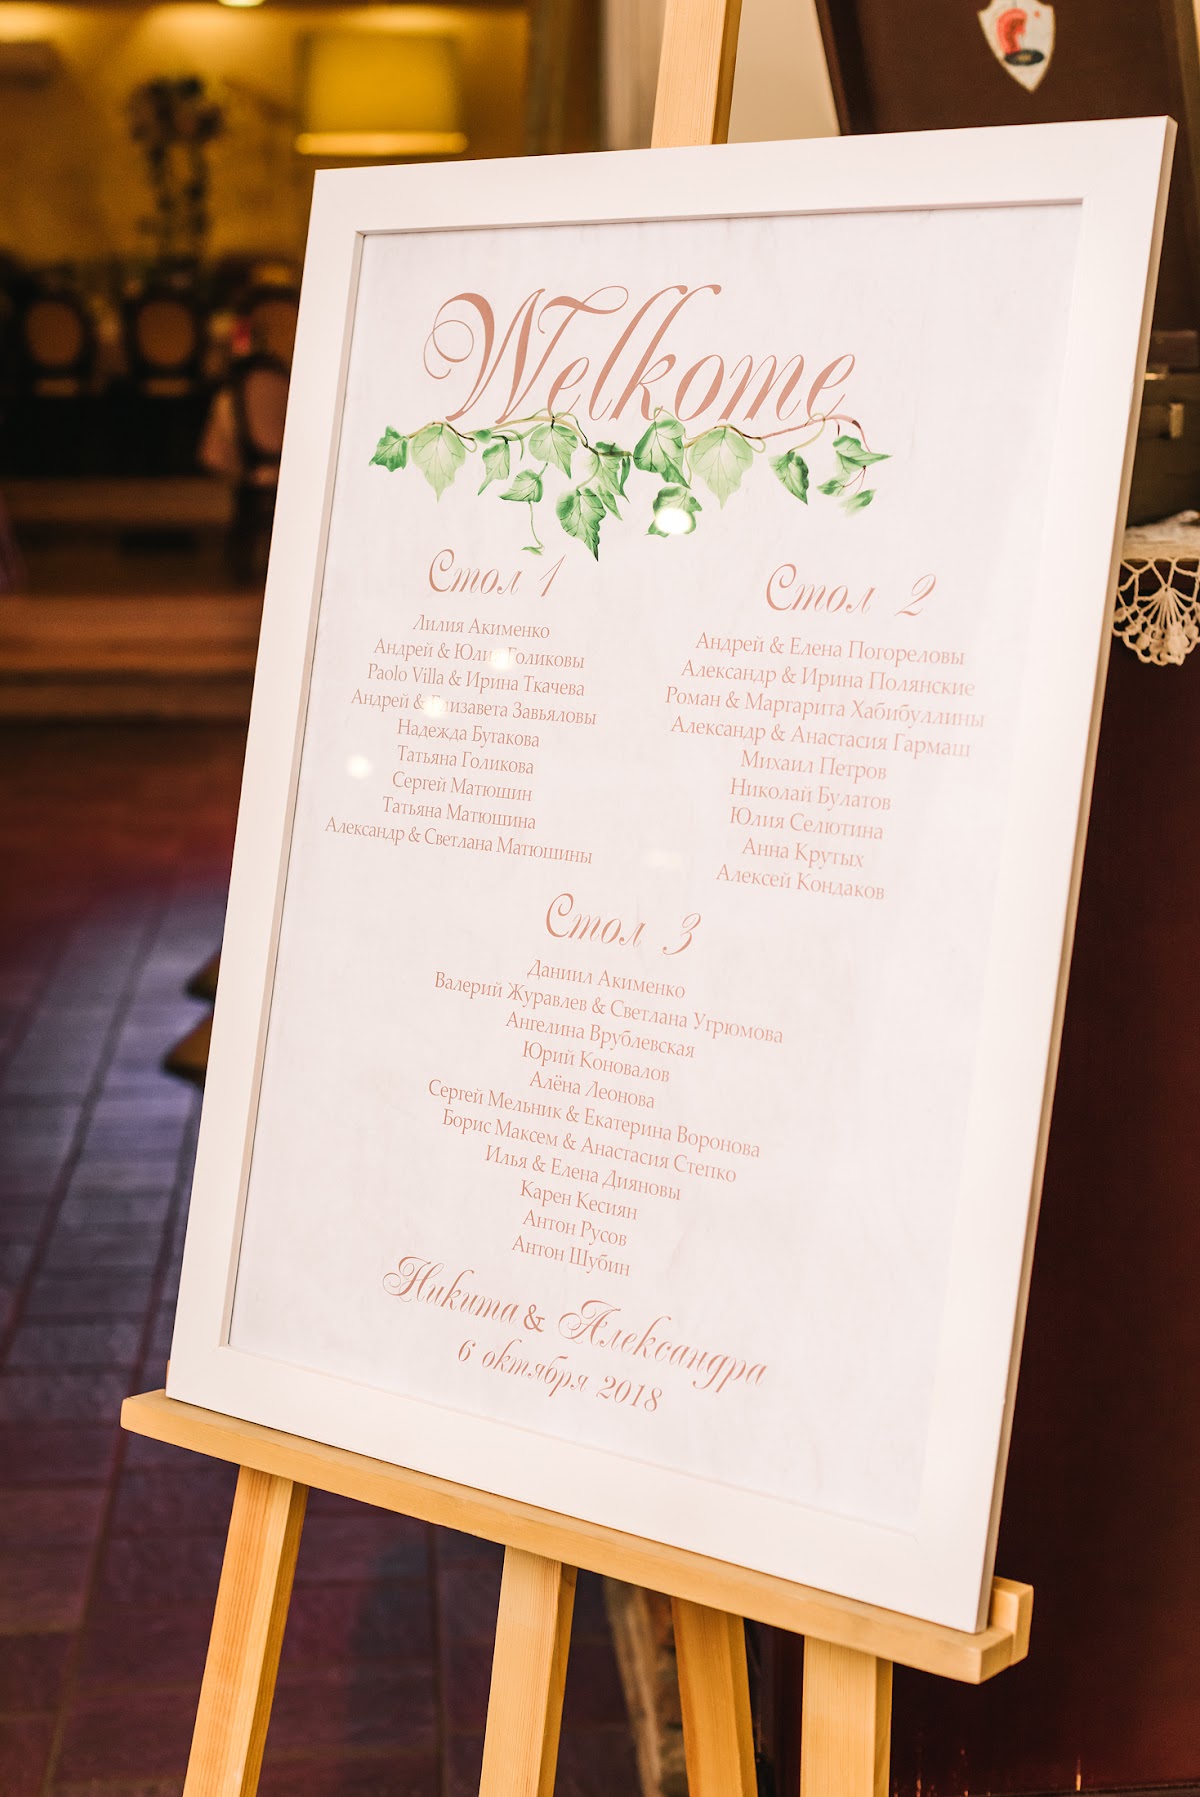 Welkome
Стол 1
Лилия Акименко
Андрей & Юлия Голиковы
Paolo Villa & Ирина Ткачева
Андрей & Елизавета Завьяловы
Надежда Бутакова
Татьяна Голикова
Сергей Матюшин
Татьяна Матюшина
Александр & Светлана Матюшины
Стол 2
Андрей & Елена Погореловы
Александр & Ирина Полянские
Роман & Маргарита Хабибуллины
Александр & Анастасия Гармаш
Михаил Петров
Николай Булатов
Юлия Селютина
Анна Крутых
Алексей Кондаков
Стол 3
Даниил Акименко
Валерий Журавлев & Светлана Угрюмова
Ангелина Врублевская
Юрий Коновалов
Алёна Леонова
Сергей Мельник & Екатерина Воронова
Борис Максем & Анастасия Степко
Илья & Елена Дияновы
Карен Кесиян
Антон Русов
Антон Шубин
Никита & Александра
6 октября 2018